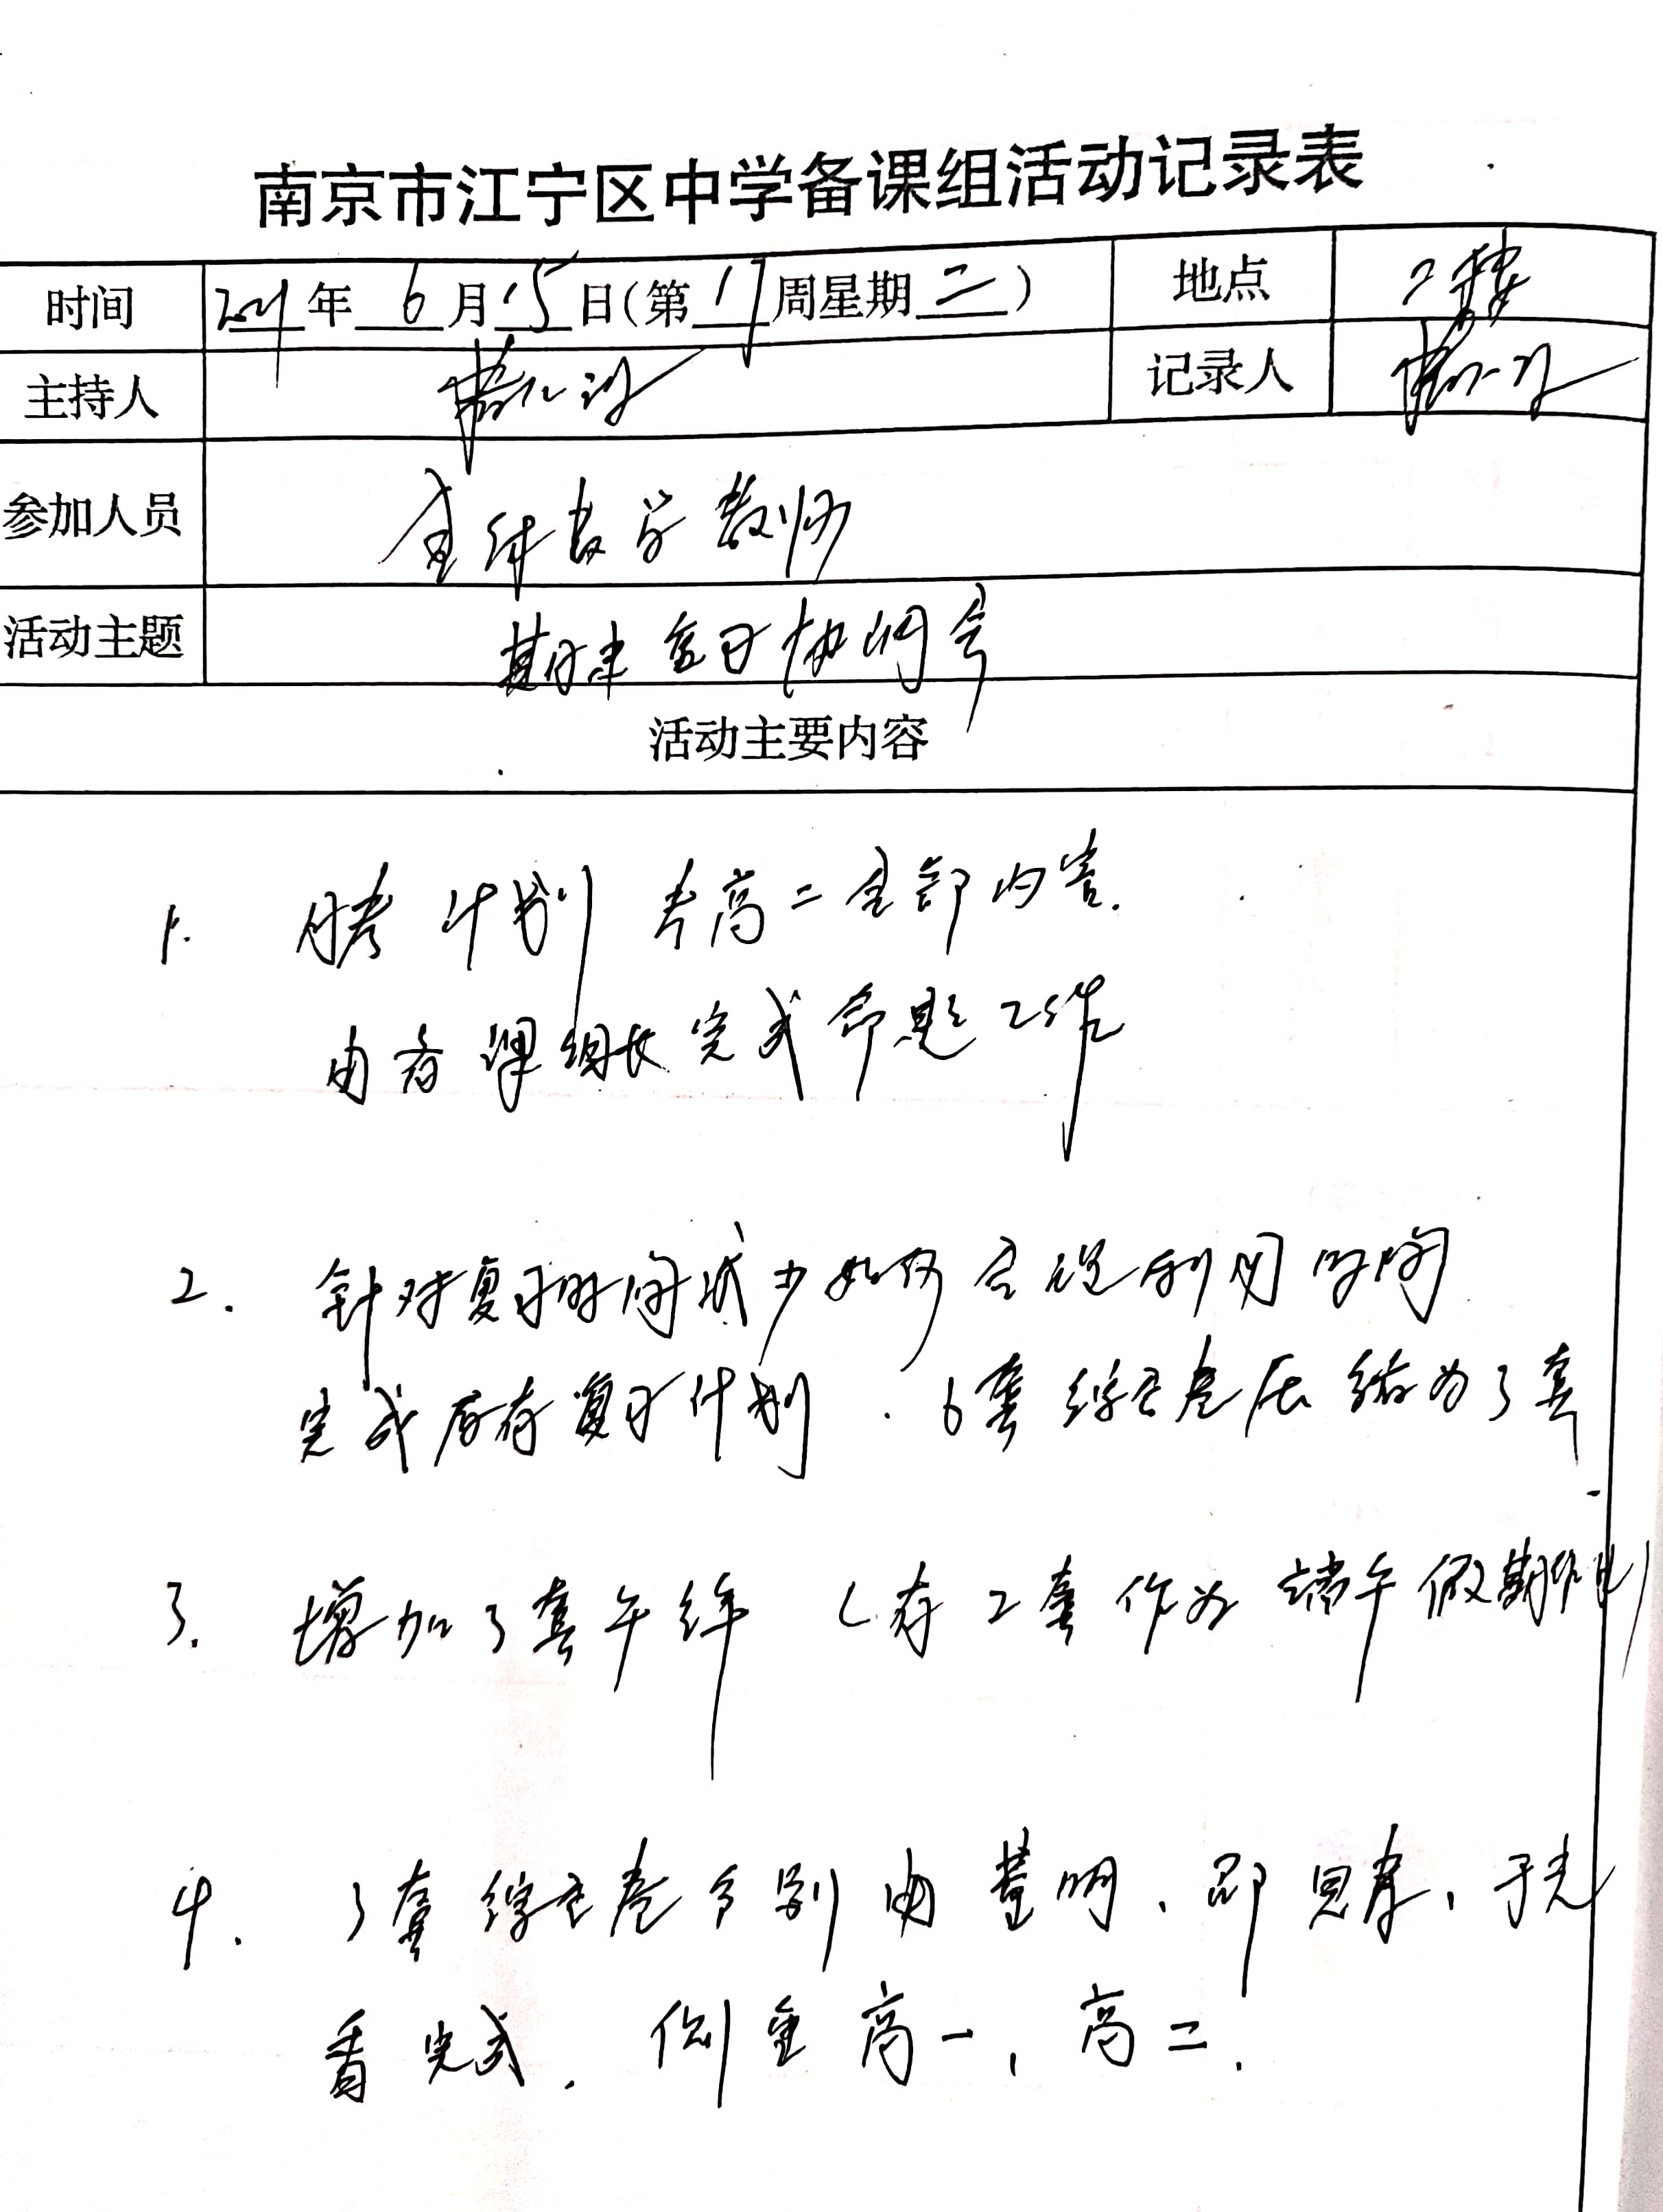 南京市江宁区中学备课组活动记录表
时间 2021年 6 月 15 日(第 17 周星期 二 ) 地点 2楼
主持人 记录人
参加人员 全体数学教师
活动主题 期末复习协调会
活动主要内容
1. 月考计划考高二全部内容.
由备课组长完成命题工作
2. 针对复习时间减少如何合理利用时间
完成后存复习计划. 6套综合卷压缩为3套
3. 增加3套午练 (存2套作为端午假期作业)
4. 3套综合卷分别由董明、邵、于
完成. 侧重高一, 高二.